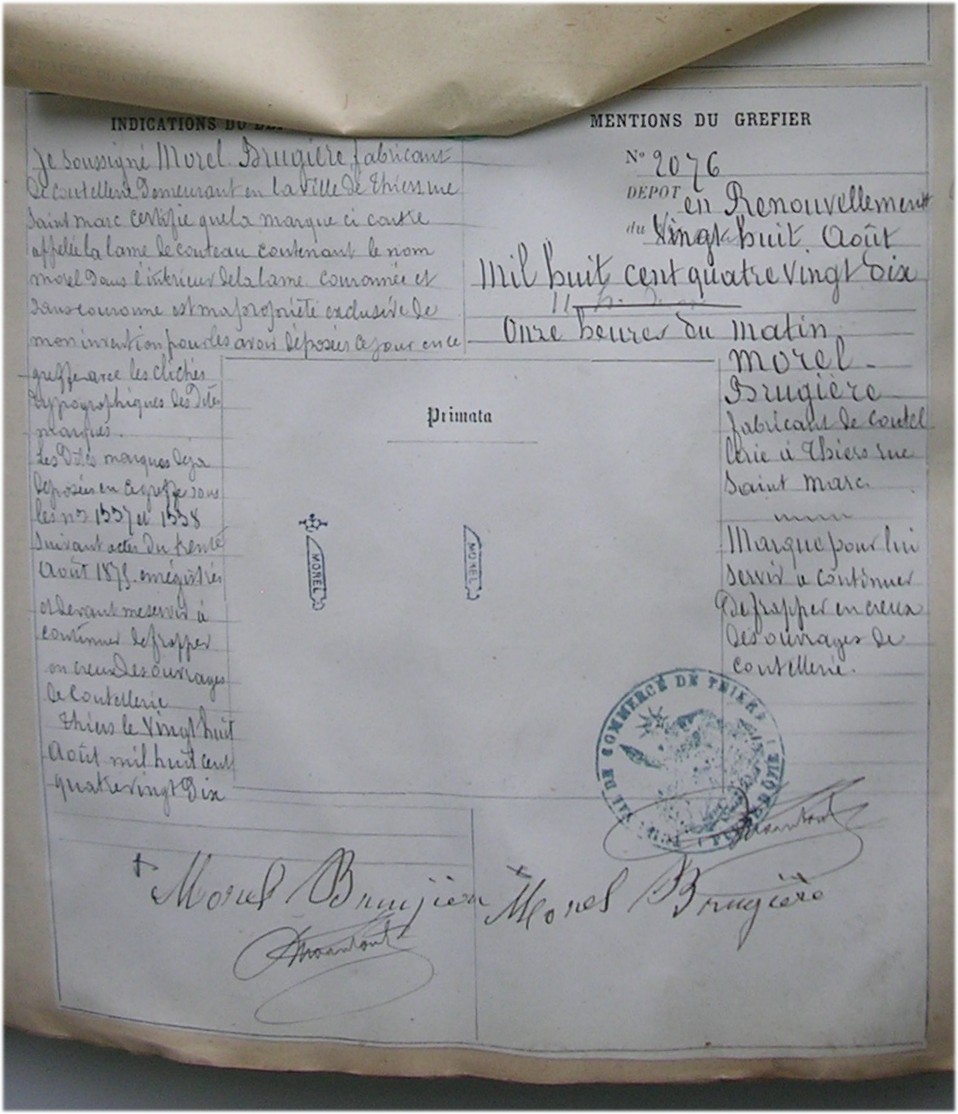 INDICATIONS DU DÉ
Je soussigné Morel Brugière fabricant
de coutellerie demeurant en la ville de Thiers rue
Saint Marc certifie que la marque ci contre
appelée la lame de couteau contenant le nom
morel dans l'intérieur de la lame couronnée et
sans couronne est ma propriété exclusive de
mon invention pour les avoir déposées ce jour en ce
greffe avec les clichés
typographiques des dites
marques.
Les dites marques déja
déposées en ce greffe sous
les nos 1337 et 1338
suivant actes du trente
Août 1875 enrégistrés
et devant me servir à
continuer de frapper
en creux des ouvrages
de coutellerie
Thiers le vingt huit
Août mil huit cent
quatre vingt dix
Morel Brugière
MENTIONS DU GREFIER
No 2076
DEPOT en Renouvellement
du Vingt huit Août
Mil huit cent quatre vingt dix
Onze heures du matin
Morel
Brugière
fabricant de coutel
lerie à Thiers rue
Saint Marc
Marque pour lui
servir à continuer
de frapper en creux
des ouvrages de
coutellerie.
Primata
MOREL
MOREL
COMMERCE DE THIERS
Morel Brugière